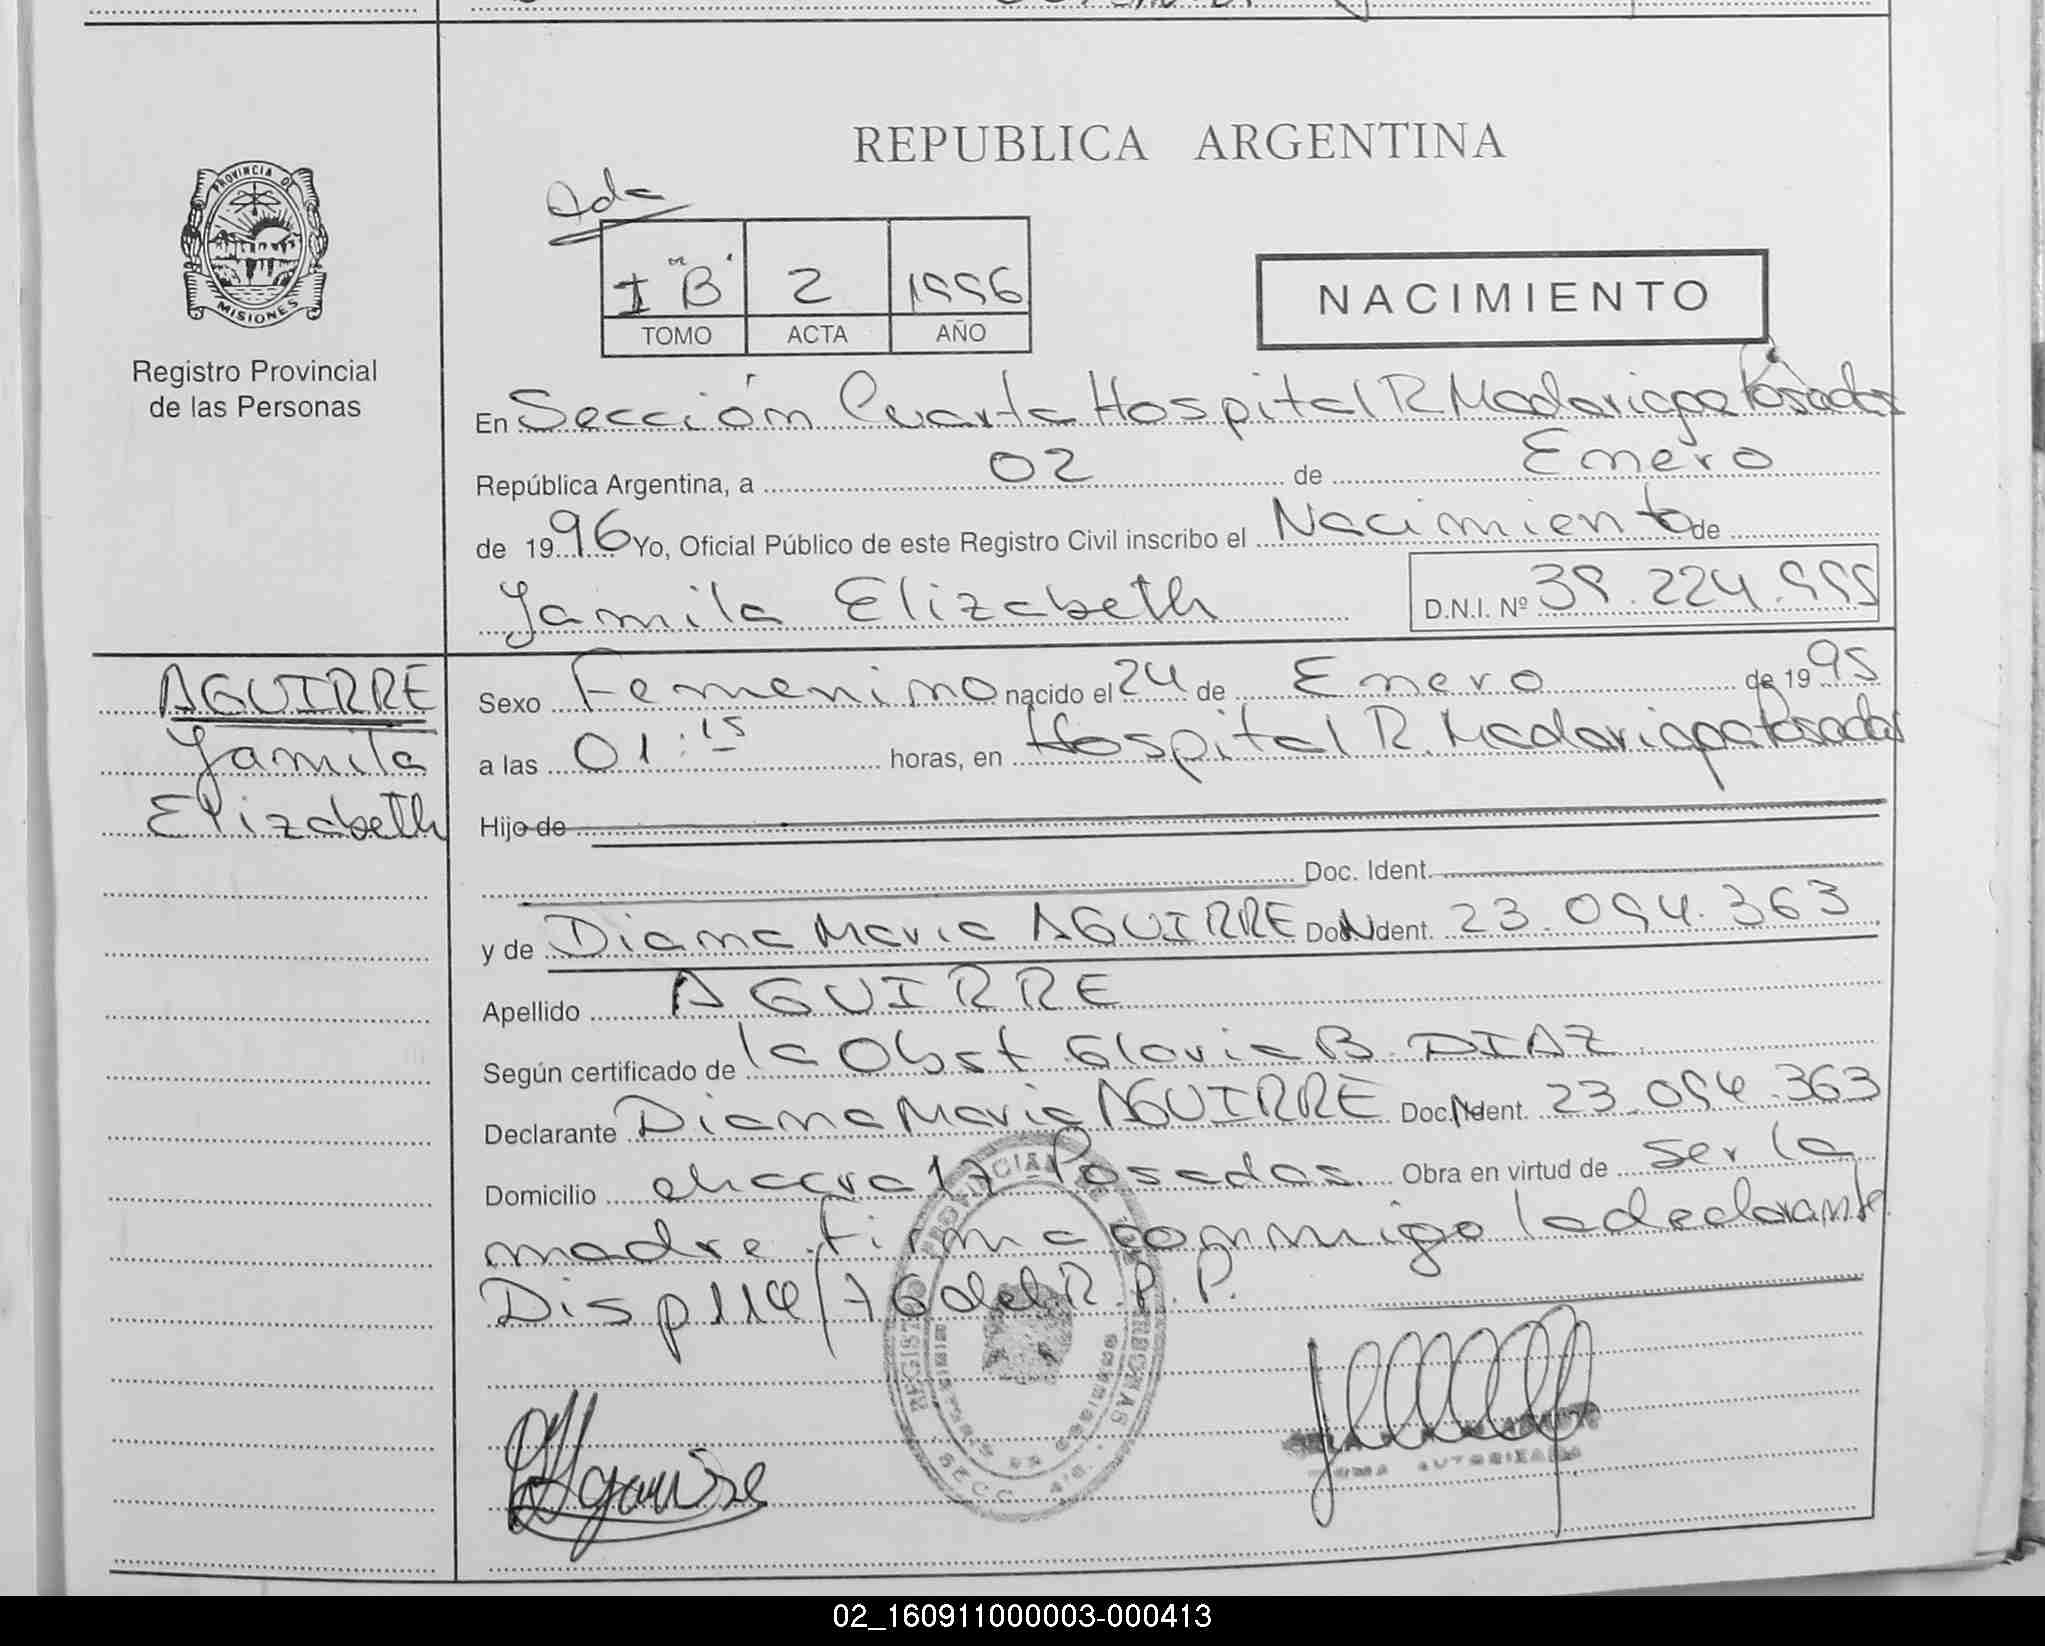 REPUBLICA ARGENTINA
PROVINCIA DE
MISIONES
Registro Provincial
de las Personas
I "B" 2 1996
TOMO ACTA AÑO
NACIMIENTO
En Sección Cuarta Hospital R. Madariaga Posadas
República Argentina, a 02 de Enero
de 1996 Yo, Oficial Público de este Registro Civil inscribo el Nacimiento de
Yamila Elizabeth D.N.I. Nº 39.224.995
AGUIRRE
Yamila
Elizabeth
Sexo Femenino nacido el 24 de Enero de 1995
a las 01:15 horas, en Hospital R. Madariaga Posadas
Hijo de
Doc. Ident.
y de Diana Maria AGUIRRE Doc. Ident. 23.094.363
Apellido AGUIRRE
Según certificado de la Obst Gloria B. DIAZ
Declarante Diana Maria AGUIRRE Doc. Ident. 23.094.363
Domicilio chacra 17 Posadas. Obra en virtud de ser la
madre firma conmigo la declarante
Disp 114/76 del R.P.P.
02_160911000003-000413